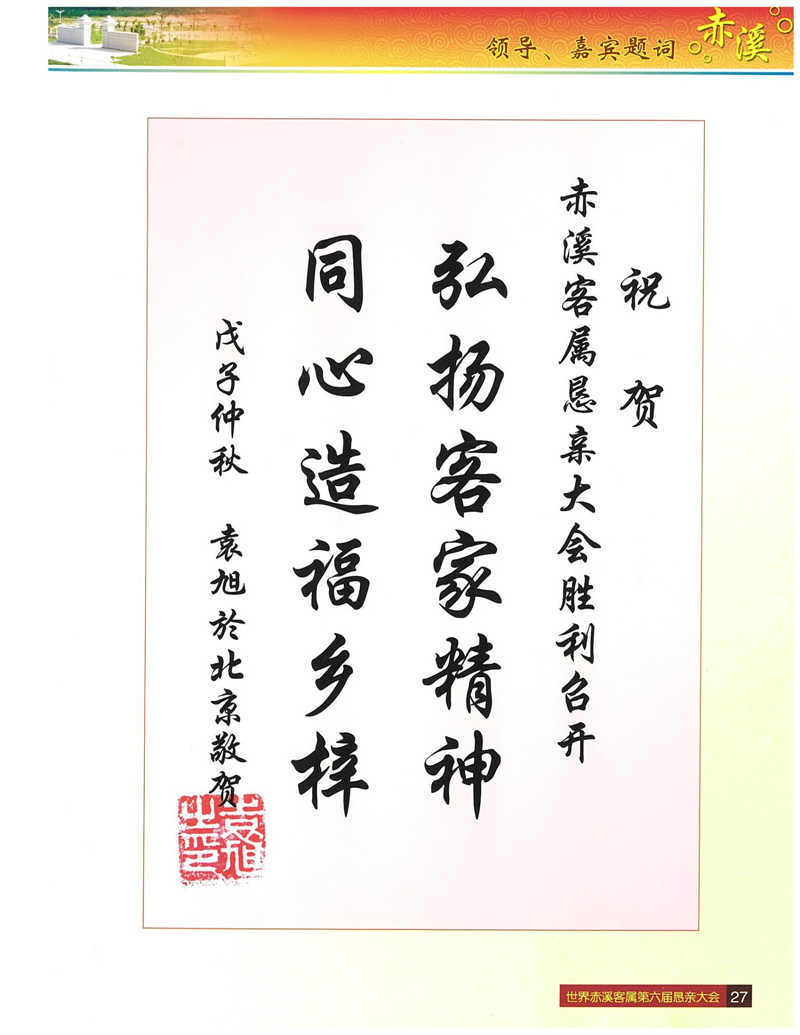 领导、嘉宾题词
赤溪
祝贺
赤溪客属恳亲大会胜利召开
弘扬客家精神
同心造福乡梓
戊子仲秋 袁旭於北京敬贺
袁旭之印
世界赤溪客属第六届恳亲大会 27